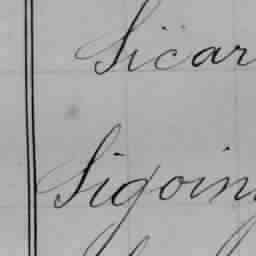 Sicar
Sigoin